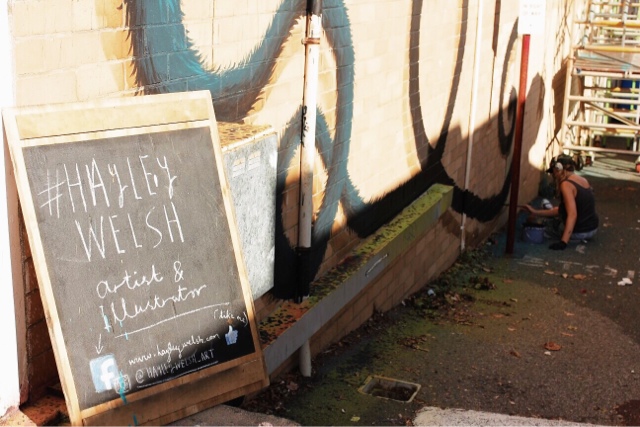 #HAYLEY
WELSH
artist &
Illustrator
(like us)
www.hayleywelsh.com
f
@HAYLEYWELSH_ART